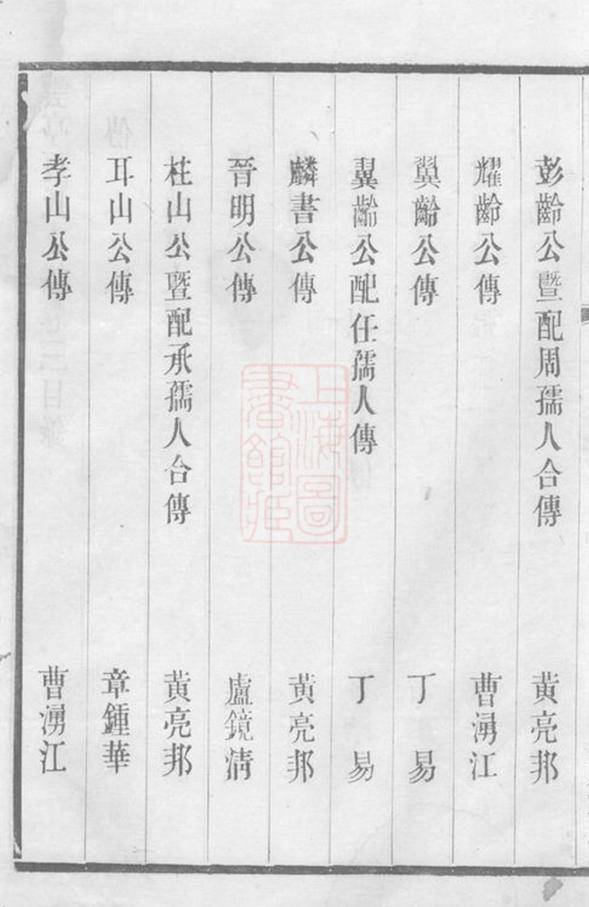 彭齡公暨配周孺人合傳 黃亮邦
耀齡公傳 曹湧江
翼齡公傳 丁易
翼齡公配任孺人傳 丁易
麟書公傳 黃亮邦
晉明公傳 盧鏡清
桂山公暨配承孺人合傳 黃亮邦
耳山公傳 章鍾華
孝山公傳 曹湧江
上海圖書館藏